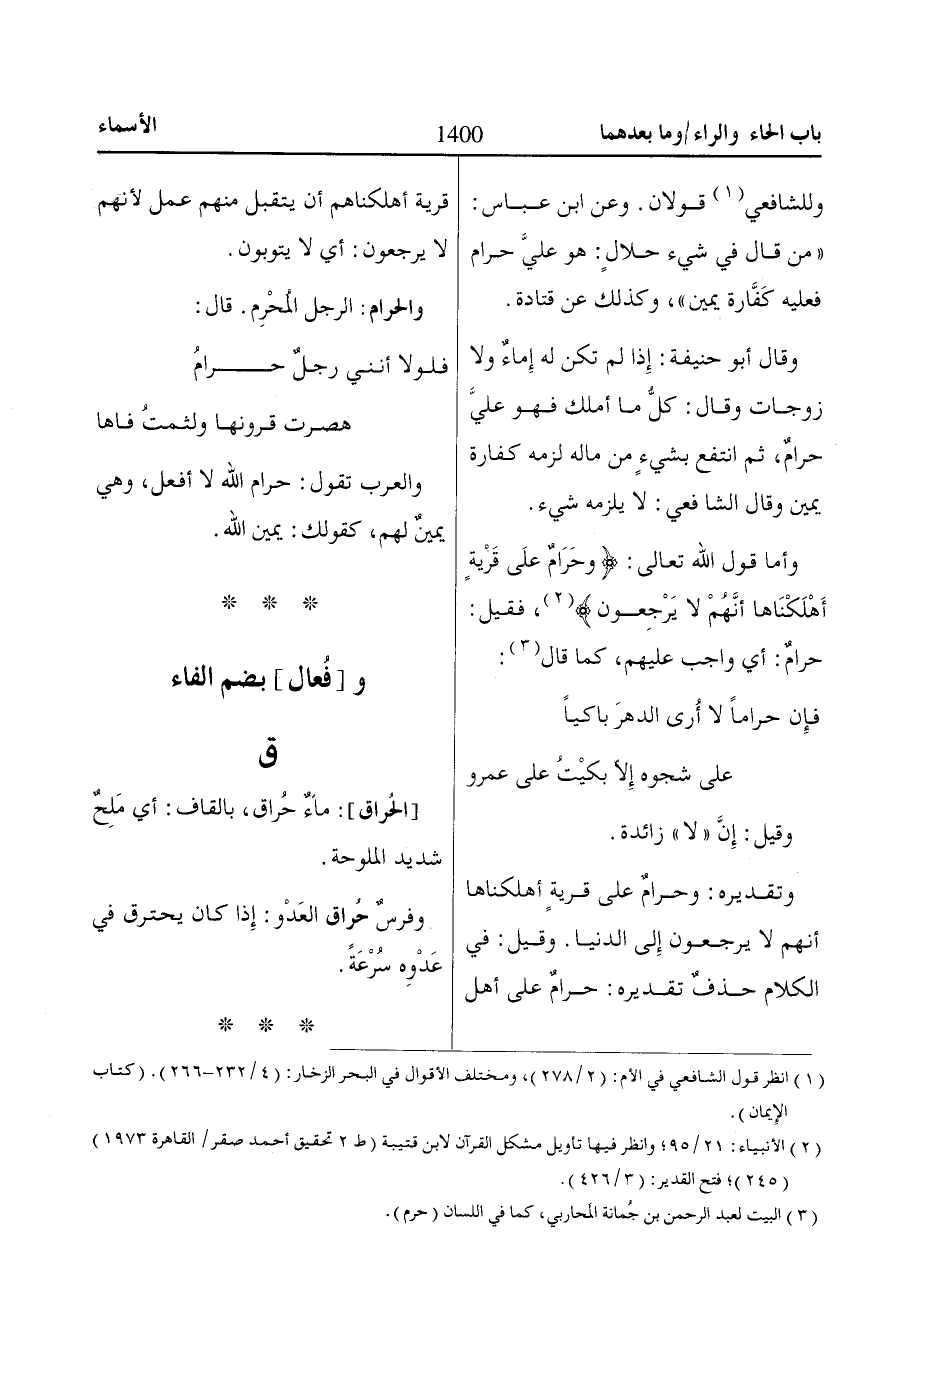 باب الحاء والراء/وما بعدهما
1400
الأسماء
وللشافعي(١) قولان. وعن ابن عباس:
«من قال في شيء حلالٍ: هو عليَّ حرام
فعليه كَفَّارة يمين»، وكذلك عن قتادة.
وقال أبو حنيفة: إذا لم تكن له إماءٌ ولا
زوجات وقال: كلُّ ما أملك فهو عليَّ
حرامٌ، ثم انتفع بشيءٍ من ماله لزمه كفارة
يمين وقال الشافعي: لا يلزمه شيء.
وأما قول الله تعالى: ﴿وحَرَامٌ علَى قَرْيةٍ
أَهْلَكْنَاها أنَّهُمْ لا يَرْجعون﴾(٢)، فقيل:
حرامٌ: أي واجب عليهم، كما قال(٣):
فإن حراماً لا أُرى الدهرَ باكياً
على شجوه إلاّ بكيْتُ على عمرو
وقيل: إنَّ «لا» زائدة.
وتقديره: وحرامٌ على قريةٍ أهلكناها
أنهم لا يرجعون إلى الدنيا. وقيل: في
الكلام حذفٌ تقديره: حرامٌ على أهل
قرية أهلكناهم أن يتقبل منهم عمل لأنهم
لا يرجعون: أي لا يتوبون.
والحرام: الرجل المُحْرِم. قال:
فلولا أنني رجلٌ حرامُ
هصرت قرونها ولثمتُ فاها
والعرب تقول: حرام الله لا أفعل، وهي
يمينٌ لهم، كقولك: يمين الله.
* * *
و [فُعال] بضم الفاء
ق
[الحُراق]: ماءٌ حُراق، بالقاف: أي مَلِحٌ
شديد الملوحة.
وفرسٌ حُراق العَدْو: إذا كان يحترق في
عَدْوِه سُرْعَةً.
* * *
(١) انظر قول الشافعي في الأم: (٢/ ٢٧٨)، ومختلف الأقوال في البحر الزخار: (٤/ ٢٣٢-٢٦٦). (كتاب
الإيمان).
(٢) الأنبياء: ٢١/ ٩٥؛ وانظر فيها تأويل مشكل القرآن لابن قتيبة (ط ٢ تحقيق أحمد صقر/ القاهرة ١٩٧٣)
(٢٤٥)؛ فتح القدير: (٣/ ٤٢٦).
(٣) البيت لعبد الرحمن بن جُمانة المحاربي، كما في اللسان (حرم).